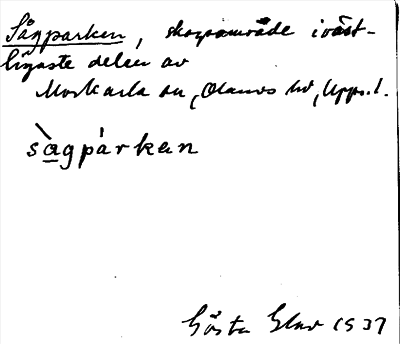 Sågparken, skogsområde i väst-
ligaste delen av
Morkarla sn, Olands hd, Upps. l.
sàgpárken
Gösta 1937